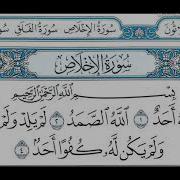 سُورَةُ الإِخْلَاصِ سُورَةُ الْفَلَقِ سُورَةُ
سُورَةُ الإِخْلَاصِ
بِسْمِ اللَّهِ الرَّحْمَٰنِ الرَّحِيمِ
أَحَدٌ ١ اللَّهُ الصَّمَدُ ٢ لَمْ يَلِدْ وَلَمْ
وَلَمْ يَكُن لَّهُ كُفُوًا أَحَدٌ ٤